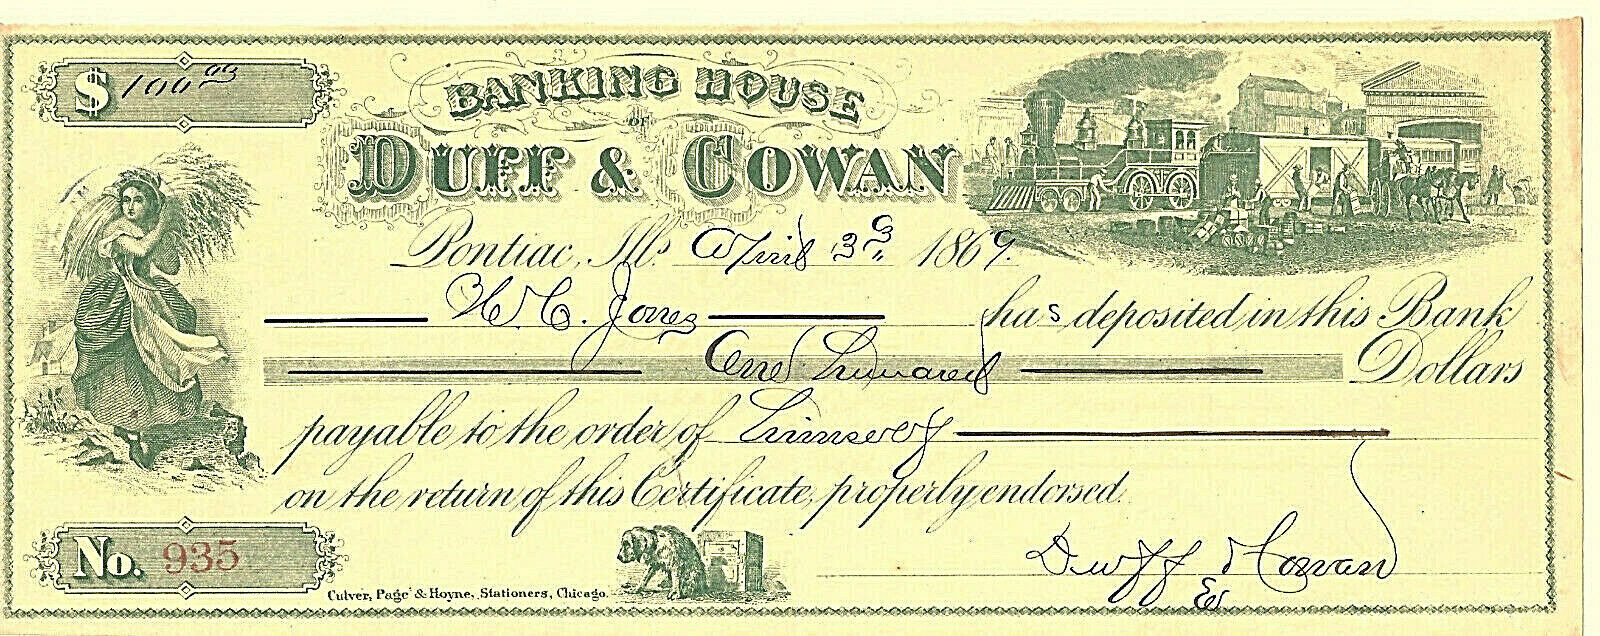 $ 100.00
BANKING HOUSE
OF
DUFF & COWAN
Pontiac, Ills. April 3d, 1869.
W. C. Jones has deposited in this Bank
One Hundred Dollars
payable to the order of himself
on the return of this Certificate, properly endorsed.
No. 935
Duff & Cowan
Culver, Page & Hoyne, Stationers, Chicago.